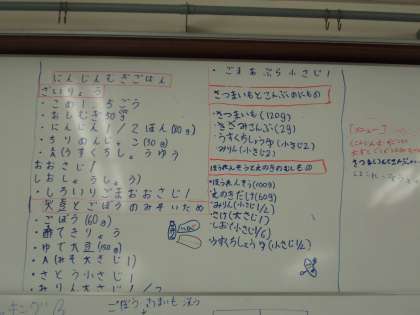 にんじんむぎごはん
ざいりょう
・こめ1.5ごう
・おしむぎ30g
・にんじん1/2ほん(80g)
・ちりめんじゃこ(30g)
・A(うすくちしょうゆう
おおさじ1
しおしょうしょう)
・しろいりごまおおさじ1
大豆とごぼうのみそいため
・ごぼう(60g)
・酢てきりょう
・ゆで大豆(150g)
・A(みそ大さじ1)
・さとう小さじ1
・みりん大さじ1/2
・ごまあぶら小さじ1
さつまいもとこんぶのにもの
・さつまいも(120g)
・きざみこんぶ(2g)
・うすくちしょうゆ(小さじ2)
・みりん(小さじ2)
ほうれんそうとえのきのおひたし
・ほうれんそう(100g)
・えのきだけ(60g)
・みりん(小さじ1/2)
・さけ(大さじ1)
・しお(小さじ1/6)
・うすくちしょうゆ(小さじ1/2)
[メニュー]